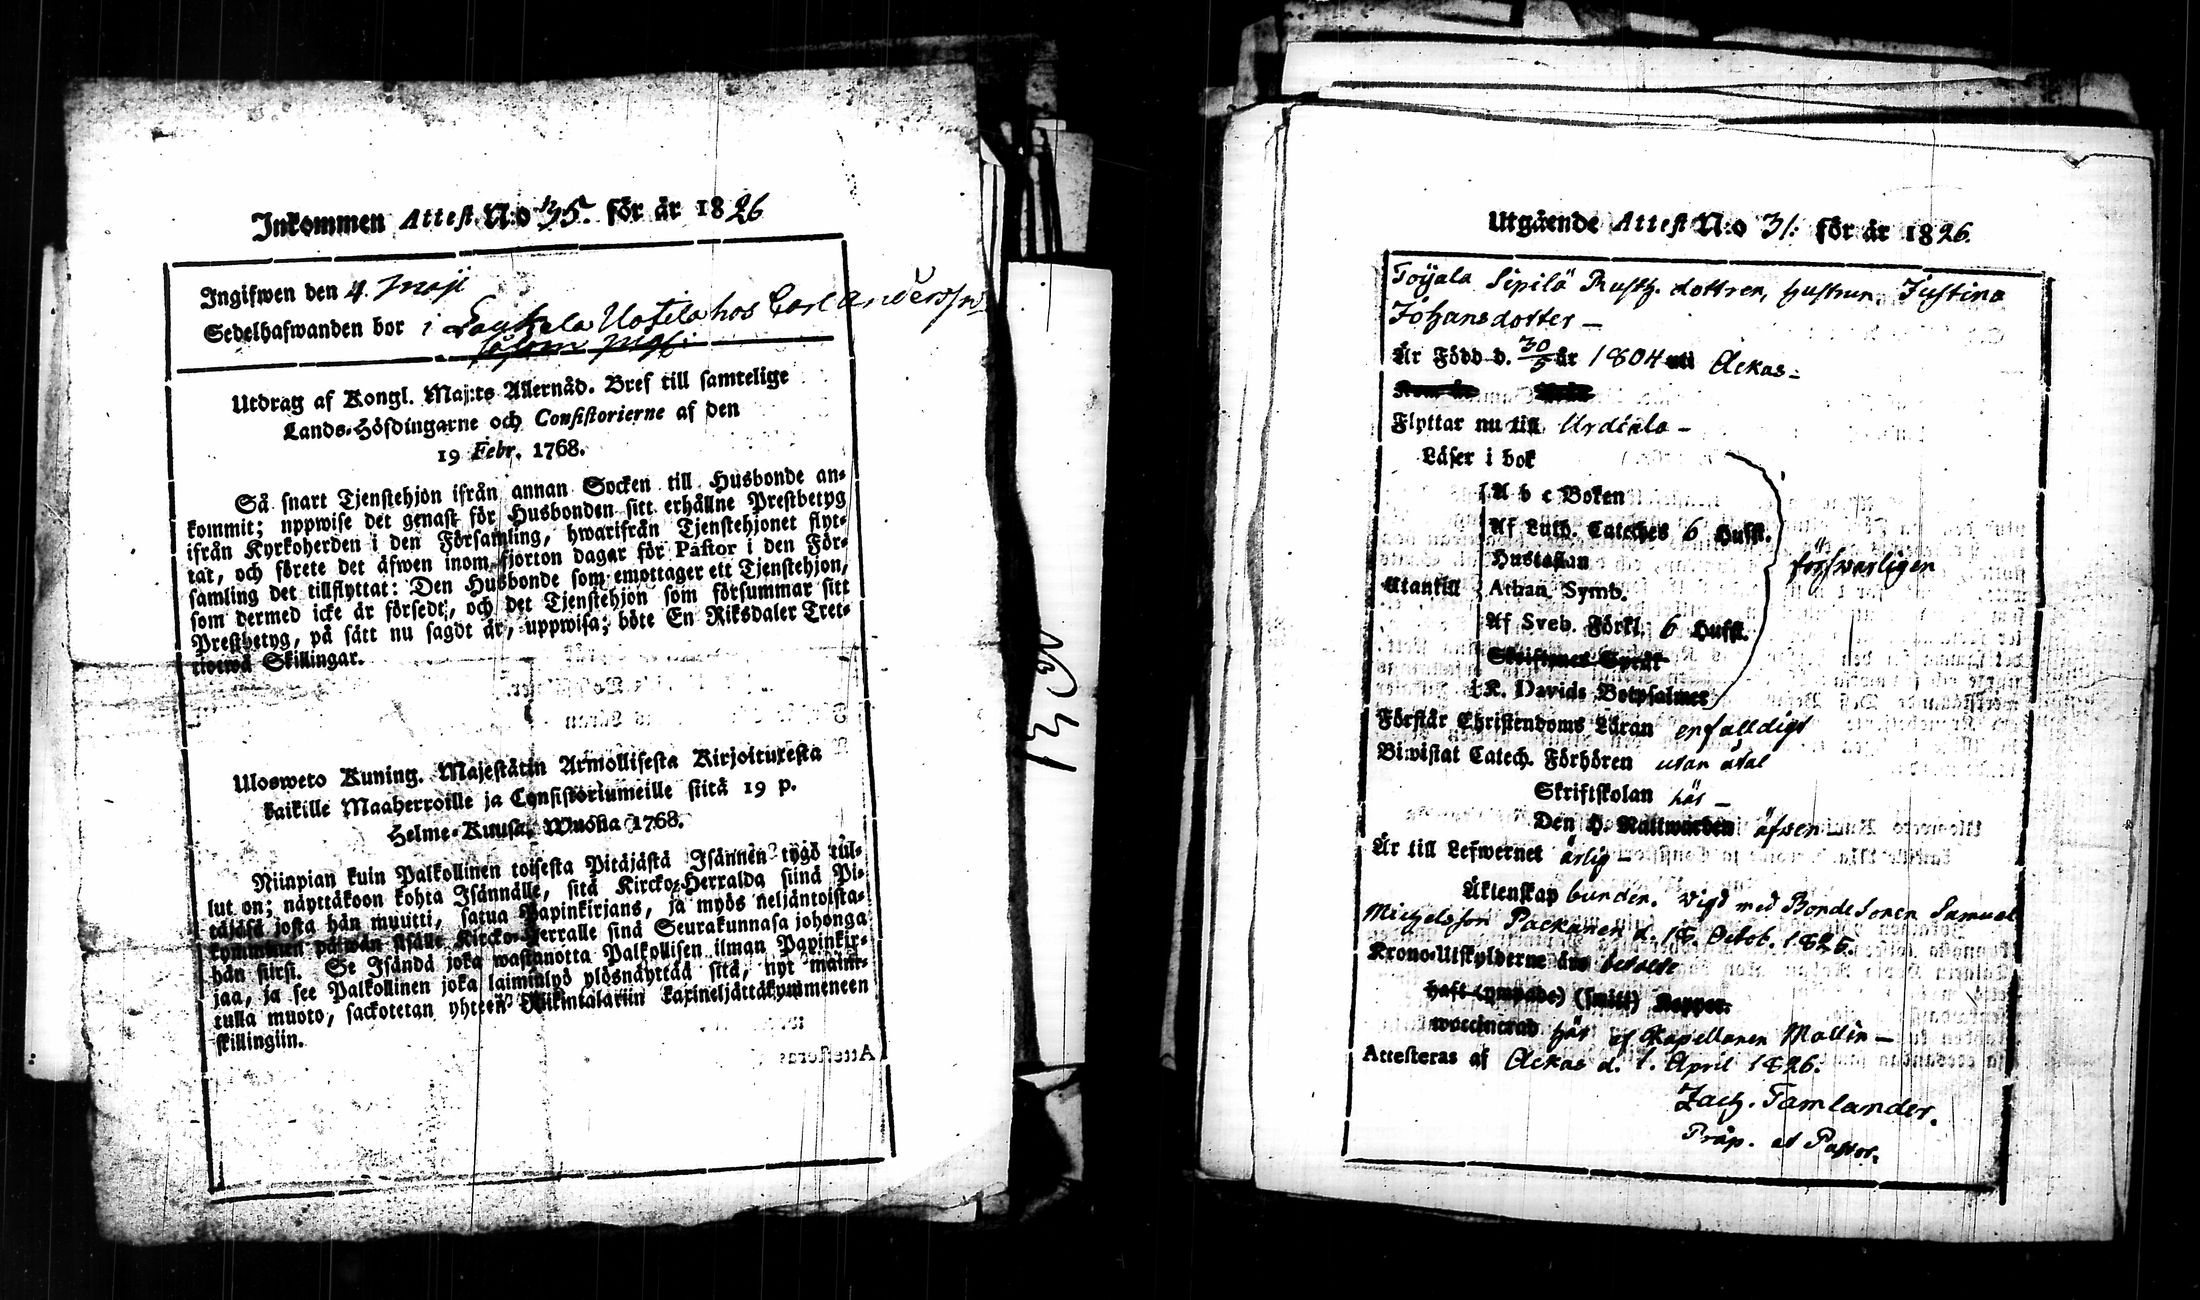 Inkommen Attest N:o 35. för år 1826
Ingifwen den 4 Maji
Sedelhafwanden bor i Laukela Uotila hos Carl Andersson
såsom pig.
Utdrag af Kongl. Maj:ts Allernåd. Bref till samtelige
Lands-Höfdingarne och Consistorierne af den
19 Febr. 1768.
Så snart Tjenstehjon ifrån annan Socken till Husbonde an-
kommit; uppwise det genast för Husbonden sitt erhållne Prestbetyg
ifrån Kyrkoherden i den Församling, hwarifrån Tjenstehjonet flyt-
tat, och förete det äfwen inom fjorton dagar för Pastor i den För-
samling det tillflyttat: Den Husbonde som emottager ett Tjenstehjon,
som dermed icke är försedt, och det Tjenstehjon som försummar sitt
Prestbetyg, på sätt nu sagdt är, uppwisa; böte En Riksdaler Tret-
tiotwå Skillingar.
Ulosweto Kuning. Majestätin Armollisesta Kirjoituxesta
kaikille Maaherroille ja Consistoriumeille siitä 19 p.
Helme-Kuusa, Wuonna 1768.
Niinpian kuin Palkollinen toisesta Pitäjästä Isännen tygö tul-
lut on; näyttäkoon kohta Isännälle, sitä Kircko-Herralda siinä Pi-
täjäsä josta hän muutti, saatua Papinkirjans, ja myös neljäntoista-
kymmenen päiwän sisälle Kircko-Herralle siinä Seurakunnasa johonga
hän siirsi. Se Isändä joka wastanotta Palkollisen ilman Papinkir-
jaa, ja see Palkollinen joka laiminlyö ylösnäyttää sitä, nyt mainit-
tulla muoto, sackotetan yhteen Rikintalariin kaxineljättäkymmeneen
skillingiin.
No 31
Utgående Attest N:o 31. för år 1826.
Toijala Sipilä Rusth. dottren, hustrun, Justina
Johansdotter –
Är Född d. 30/5 år 1804 uti Ackas –
Flyttar nu till Urdiala –
Läser i bok
A b c Boken
Af Luth. Cateches 6 Hufst.
Hustaflan
Utantill Athan. Symb.
försvarligen
Af Sveb. Förkl. 6 Hufst.
Skriftenes Språk
K. Davids Botpsalmer
Förstår Christendoms Läran enfalldigt
Biwistat Catech. Förhören utan åtal
Skriftskolan här –
Den H. Nattwarden äfven
Är till Lefwernet ärlig –
Äktenskap bunden. Vigd med Bonde Sonen Samuel
Michelsson Packanen d. 18. Octob. 1825.
Krono-Utskylderne äro betalde
haft (ympade) (smitt) Koppor.
waccinerad här af Kapellanen Mallin –
Attesteras af Ackas d. 1. April 1826.
Zach. Tamlander.
Præp. et Pastor.